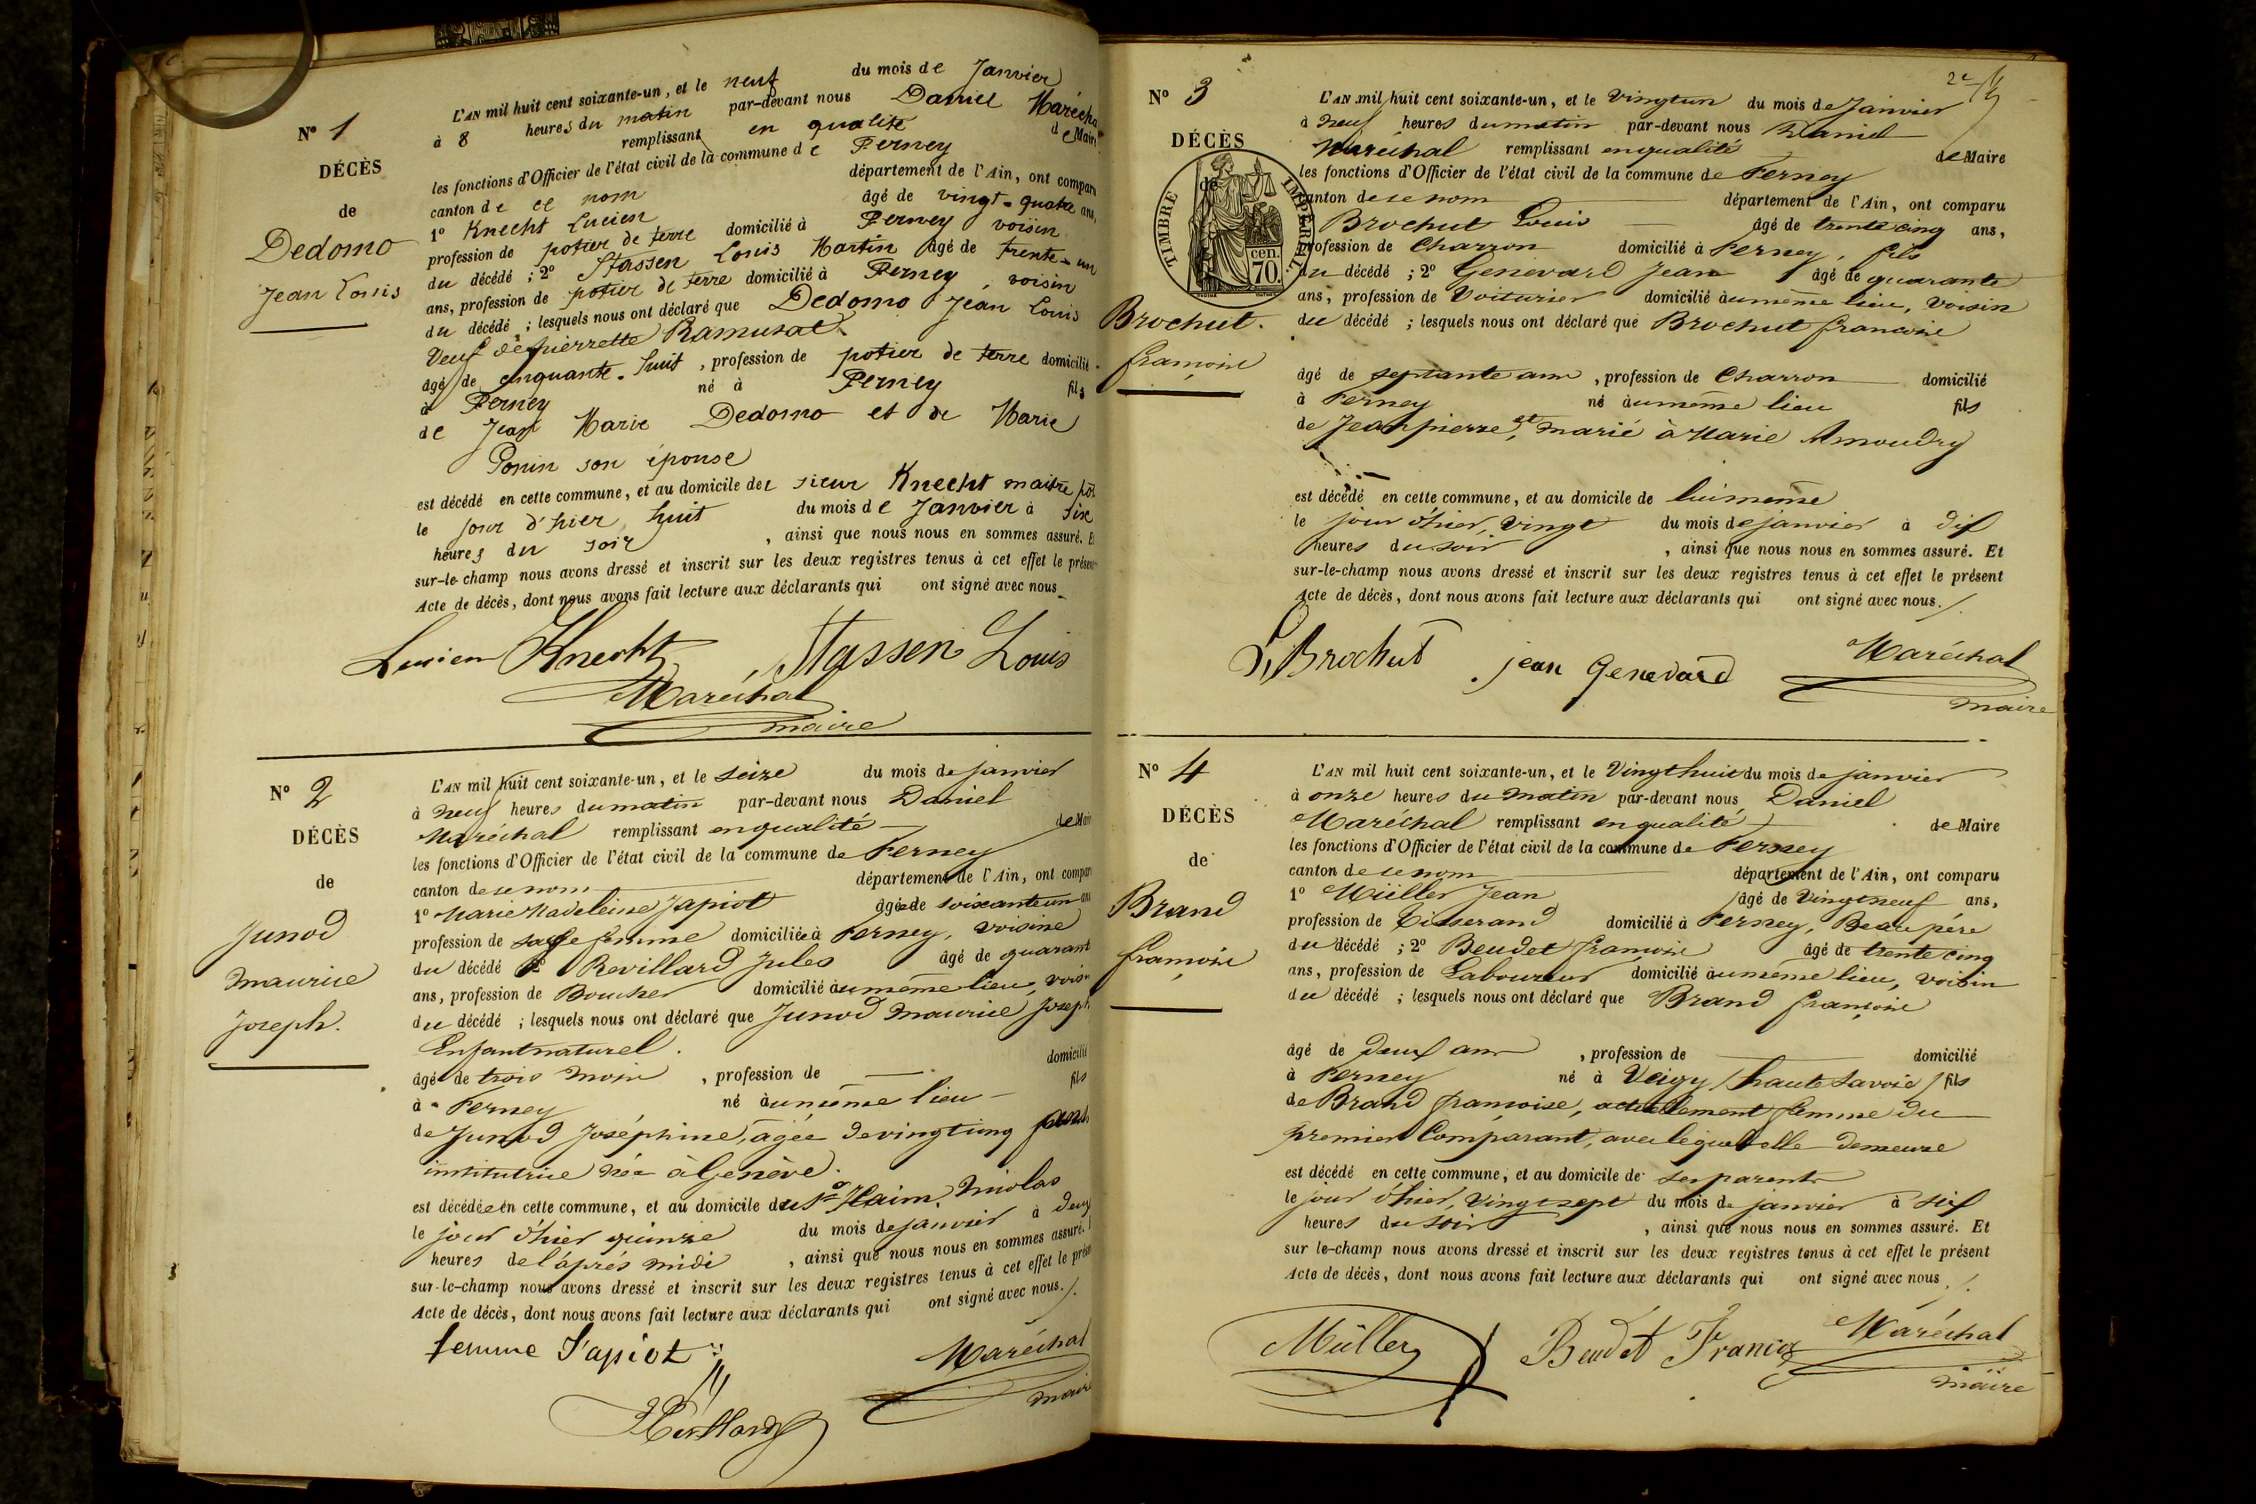 N° 1
DÉCÈS
de
Dedomo
Jean Louis
L'AN mil huit cent soixante-un, et le neuf du mois de Janvier
à 8 heures du matin par-devant nous Daniel Marécha
remplissant en qualité de Maire
les fonctions d'Officier de l'état civil de la commune de Ferney
canton de ce nom département de l'Ain, ont comparu
1° Knecht Lucien âgé de vingt-quatre ans,
profession de potier de terre domicilié à Ferney voisin
du décédé ; 2° Stassen Louis Martin âgé de trente-un
ans, profession de potier de terre domicilié à Ferney voisin
du décédé ; lesquels nous ont déclaré que Dedomo Jean Louis
Veuf de pierrette Ramusat
âgé de cinquante-huit, profession de potier de terre domicilié
à Ferney né à Ferney fils
de Jean Marie Dedomo et de Marie
Ponin son épouse
est décédé en cette commune, et au domicile de sieur Knecht maitre pot
le jour d'hier huit du mois de Janvier à six
heures du soir, ainsi que nous nous en sommes assuré. Et
sur-le-champ nous avons dressé et inscrit sur les deux registres tenus à cet effet le présent
Acte de décès, dont nous avons fait lecture aux déclarants qui ont signé avec nous
Lucien Knecht Stassen Louis
Maréchal
maire
N° 2
DÉCÈS
de
Junod
maurice
joseph.
L'AN mil huit cent soixante-un, et le seize du mois de janvier
à neuf heures du matin par-devant nous Daniel
Maréchal remplissant en qualité de Maire
les fonctions d'Officier de l'état civil de la commune de Ferney
canton de ce nom département de l'Ain, ont comparu
1° Marie Madeleine Japiot âgée de soixante un ans
profession de sage femme domiciliée à Ferney, voisine
du décédé 2° Revillard Jules âgé de quarante
ans, profession de Boucher domicilié au même lieu, voisin
du décédé ; lesquels nous ont déclaré que Junod maurice joseph
Enfant naturel.
âgé de trois mois, profession de domicilié
à Ferney né au même lieu fils
de Junod Joséphine, âgée de vingt cinq ans
institutrice née à Genève.
est décédé en cette commune, et au domicile du Sr Haim, Nicolas
le jour d'hier quinze du mois de janvier à deux
heures de l'après midi, ainsi que nous nous en sommes assuré. E
sur-le-champ nous avons dressé et inscrit sur les deux registres tenus à cet effet le présent
Acte de décès, dont nous avons fait lecture aux déclarants qui ont signé avec nous.
femme Japiot
Maréchal
maire
Revillard
2e
N° 3
DÉCÈS
de
TIMBRE IMPÉRIAL
70 cen.
Brochut.
françois
L'AN mil huit cent soixante-un, et le vingt un du mois de Janvier
à neuf heures du matin par-devant nous Daniel
Maréchal remplissant en qualité de Maire
les fonctions d'Officier de l'état civil de la commune de Ferney
canton de ce nom département de l'Ain, ont comparu
Brochut Louis âgé de trente cinq ans,
profession de Charron domicilié à Ferney, fils
du décédé ; 2° Genevard Jean âgé de quarante
ans, profession de Voiturier domicilié au même lieu, voisin
du décédé ; lesquels nous ont déclaré que Brochut françois
âgé de septante ans, profession de Charron domicilié
à Ferney né au même lieu fils
de Jean pierre, et marié à Marie Amoudry
est décédé en cette commune, et au domicile de lui même
le jour d'hier, vingt du mois de janvier à dix
heures du soir, ainsi que nous nous en sommes assuré. Et
sur-le-champ nous avons dressé et inscrit sur les deux registres tenus à cet effet le présent
Acte de décès, dont nous avons fait lecture aux déclarants qui ont signé avec nous.
L. Brochut jean Genevard Maréchal
maire
N° 4
DÉCÈS
de
Brand
françois
L'AN mil huit cent soixante-un, et le Vingt huit du mois de janvier
à onze heures du matin par-devant nous Daniel
Maréchal remplissant en qualité de Maire
les fonctions d'Officier de l'état civil de la commune de Ferney
canton de ce nom département de l'Ain, ont comparu
1° Müller Jean âgé de Vingt neuf ans,
profession de Tisserand domicilié à Ferney, Beau père
du décédé ; 2° Beudet françois âgé de trente cinq
ans, profession de Laboureur domicilié au même lieu, voisin
du décédé ; lesquels nous ont déclaré que Brand françois
âgé de deux ans, profession de domicilié
à Ferney né à Veigy (haute Savoie) fils
de Brand françoise, actuellement femme du
premier Comparant, avec lequel elle demeure
est décédé en cette commune, et au domicile de ses parents
le jour d'hier, vingt sept du mois de janvier à six
heures du soir, ainsi que nous nous en sommes assuré. Et
sur le-champ nous avons dressé et inscrit sur les deux registres tenus à cet effet le présent
Acte de décès, dont nous avons fait lecture aux déclarants qui ont signé avec nous.
Müller Beudet Francois Maréchal
maire